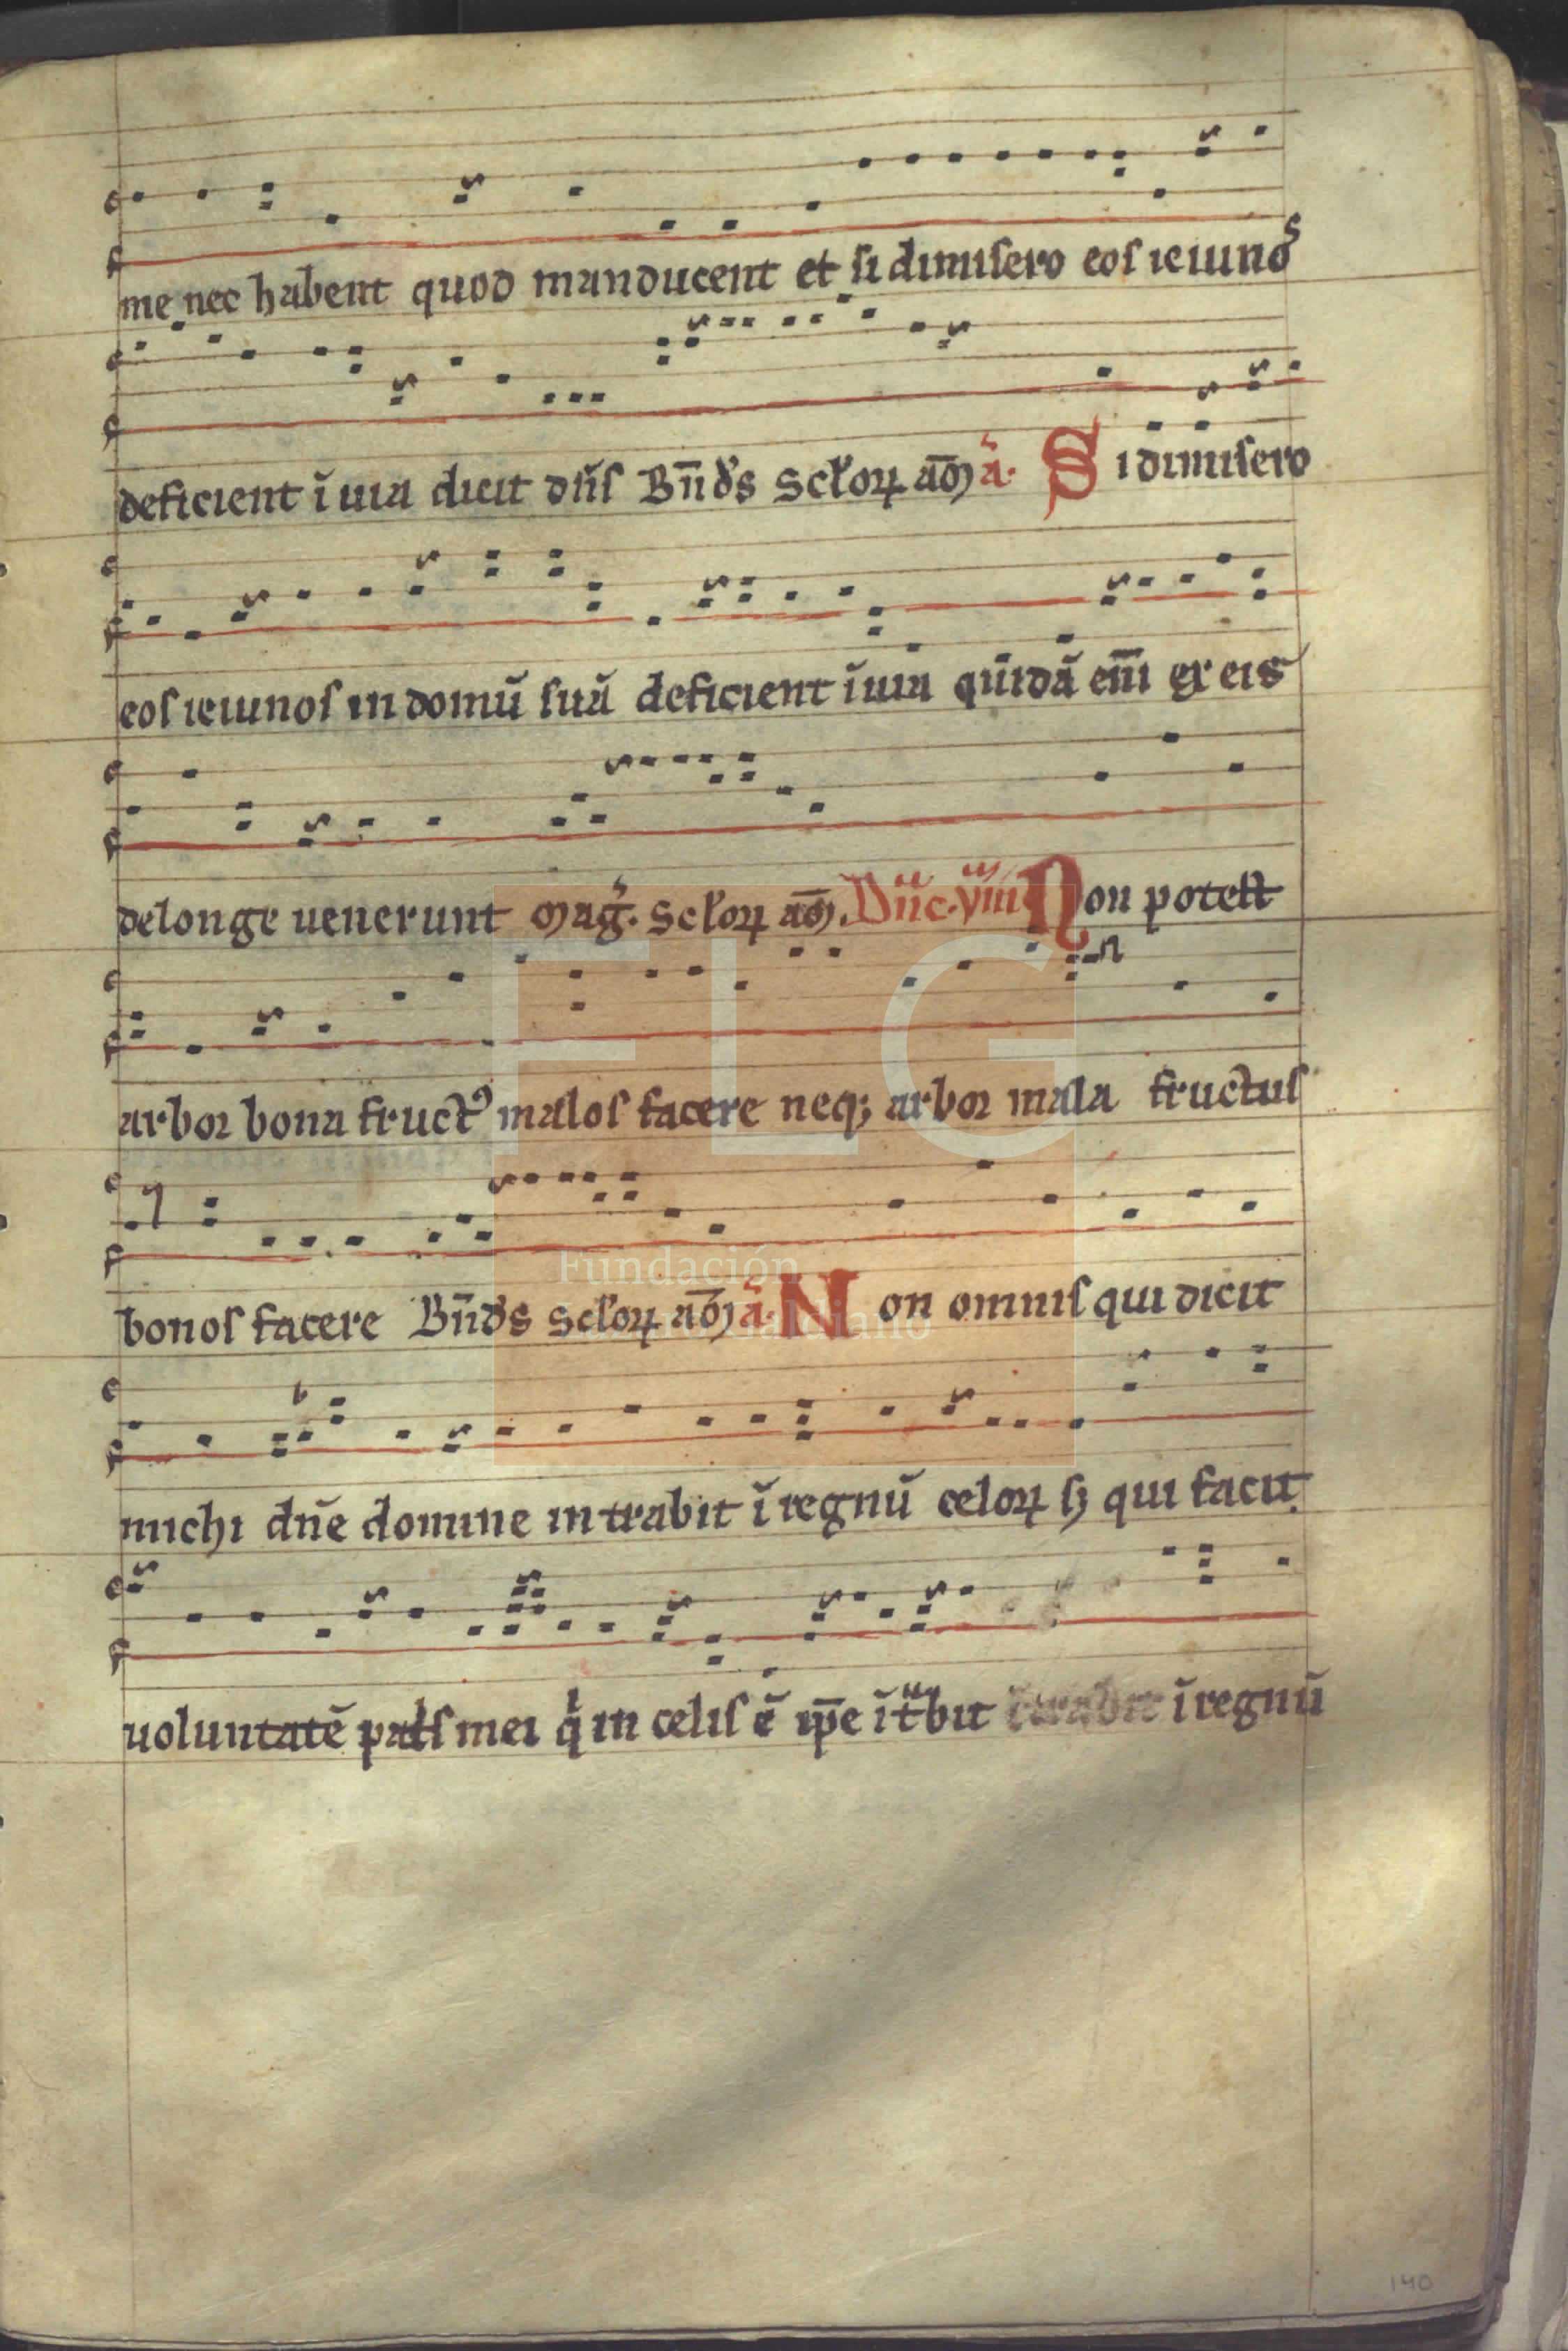 me nec habent quod manducent et si dimisero eos ieiunos
deficient ī uia dicit dn̄s Bn̄d's Sclorꝝ am̄ ā. Si dimisero
eos ieiunos in domū suā deficient ī uia quidā eni̅ ex eis
delonge uenerunt Mag̅. Sclorꝝ am̄. Dn̄c. viii Non potest
arbor bona fructꝰ malos facere neq; arbor mala fructus
bonos facere Bn̄d's Sclorꝝ am̄ ā. Non omnis qui dicit
michi dn̄e domine intrabit ī regnū celorꝝ sꝫ qui facit
uoluntatē patˢ mei q̇ in celis ē ip̄e īt̃bit ī regnū
FLG
Fundación
140